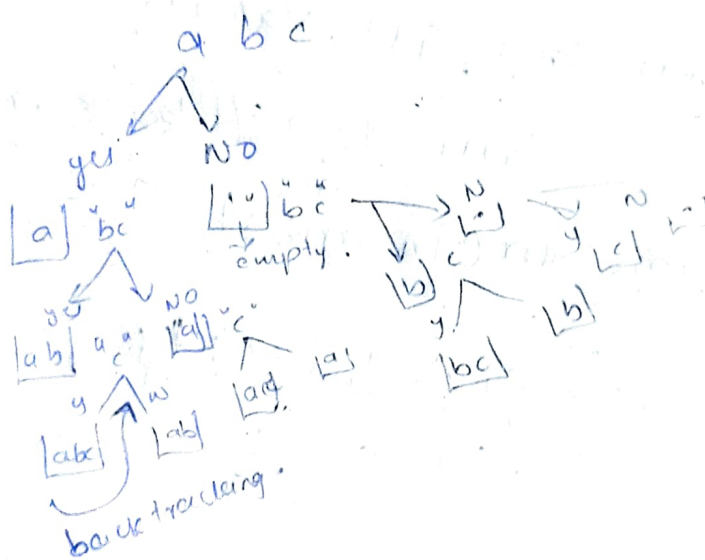 a b c
yes NO
a "bc" " " "bc" N
empty. y c N
b c
yes NO
ab "c" "a" "c" b
y N ac a y bc
abc ab
backtracking.